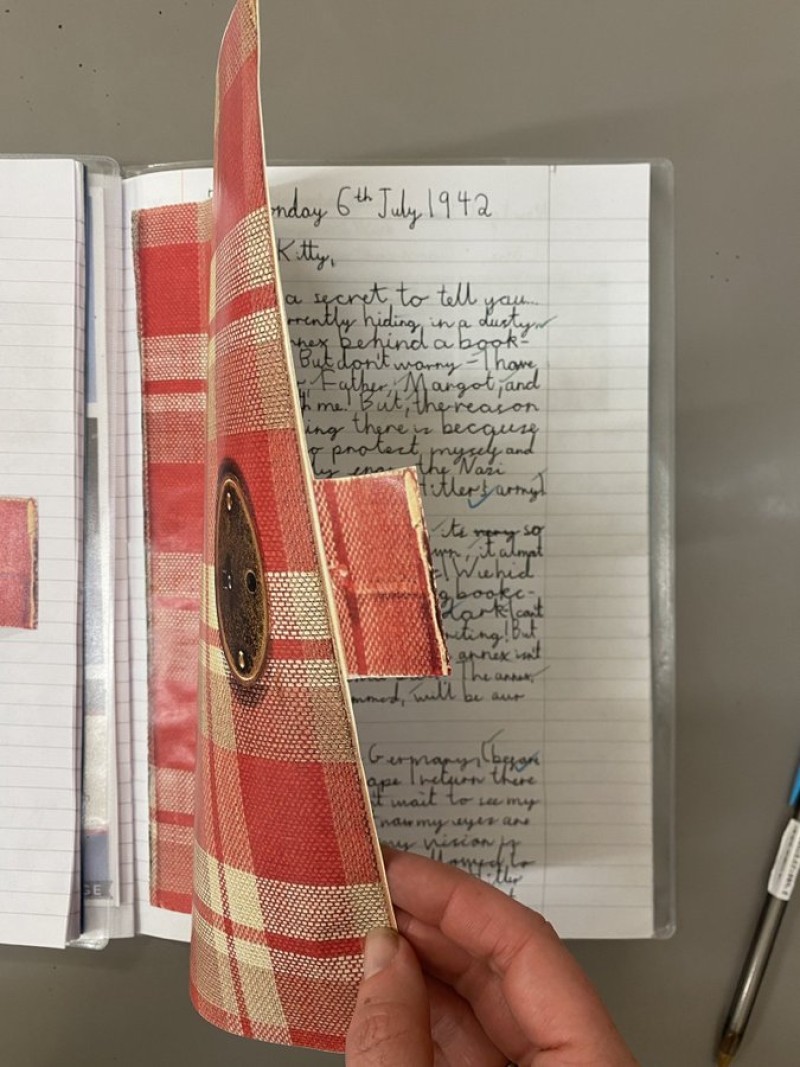 onday 6th July 1942
Kitty,
a secret to tell you...
rrently hiding in a dusty
nnex behind a book-
But don't worry - I have
Father, Margot, and
me! But, the reason
ing there is because
o protect myself and
the Nazi
Hitler's army)
its very so
wn, it almost
We hid
g bookc-
dark I can't
writing! But
annex isn't
The annex,
mmed, will be our
Germany, (before
ape I return there
t wait to see my
now my eyes are
my vision is
allowed to
Hitler
GE